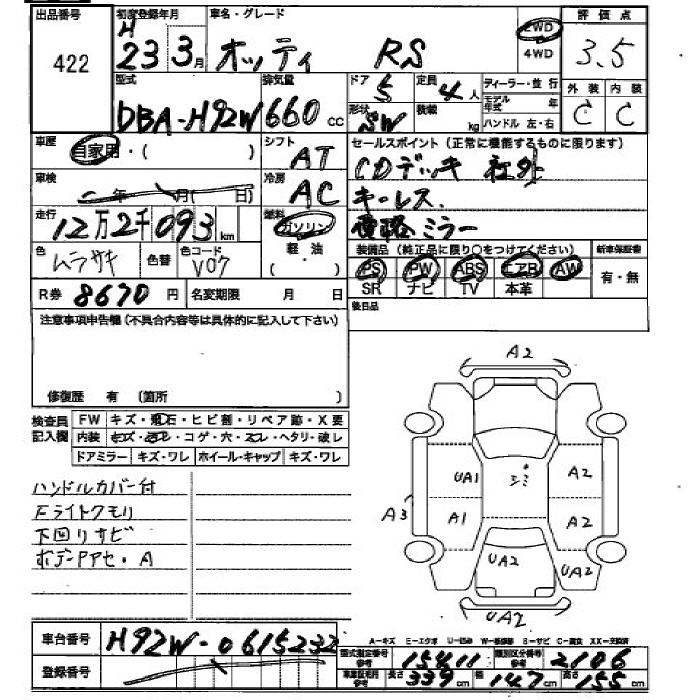 出品番号 初度登録年月 車名・グレード 評価点
422 H 23 3月 オッティ RS 2WD 4WD 3.5
型式 排気量 ドア 定員 ディーラー・並行 外装 内装
DBA-H92W 660 cc 5 4人 モデル年式 年 C C
形状 5W 積載 kg ハンドル 左・右
車歴 自家用・( ) シフト AT セールスポイント(正常に機能するものに限ります)
車検 年 月( 日) 冷房 AC CDデッキ 社外
走行 12万2千093km 燃料 ガソリン キーレス
軽油 ミラー
色 ムラサキ 色替 色コード V07 ・( ) 装備品(純正品に限り○をつけてください) 新車保証書
PS PW ABS エアB AW 有・無
R券 8670円 名変期限 月 日 SR ナビ TV 本革
後日品
注意事項申告欄(不具合内容等は具体的に記入して下さい)
修復歴 有 (箇所 )
検査員記入欄 FW キズ・飛石・ヒビ割・リペア跡・X要
内装 キズ・汚レ・コゲ・穴・スレ・ヘタリ・破レ
ドアミラー キズ・ワレ ホイール・キャップ キズ・ワレ
ハンドルカバー付
Fライトクモリ
下回リサビ
ボデーPPセ・A
A2
UA1 シミ A2
A3 A1 A2
UA2 UA2
UA2
車台番号 H92W-0615232
登録番号
A-キズ E-エクボ U-凹み W-補修跡 S-サビ C-腐食 XX-交換済
型式指定番号 参考 15411 類別区分番号 参考 2106
車庫証明用 参考 長さ 339cm 幅 147cm 高さ 155cm